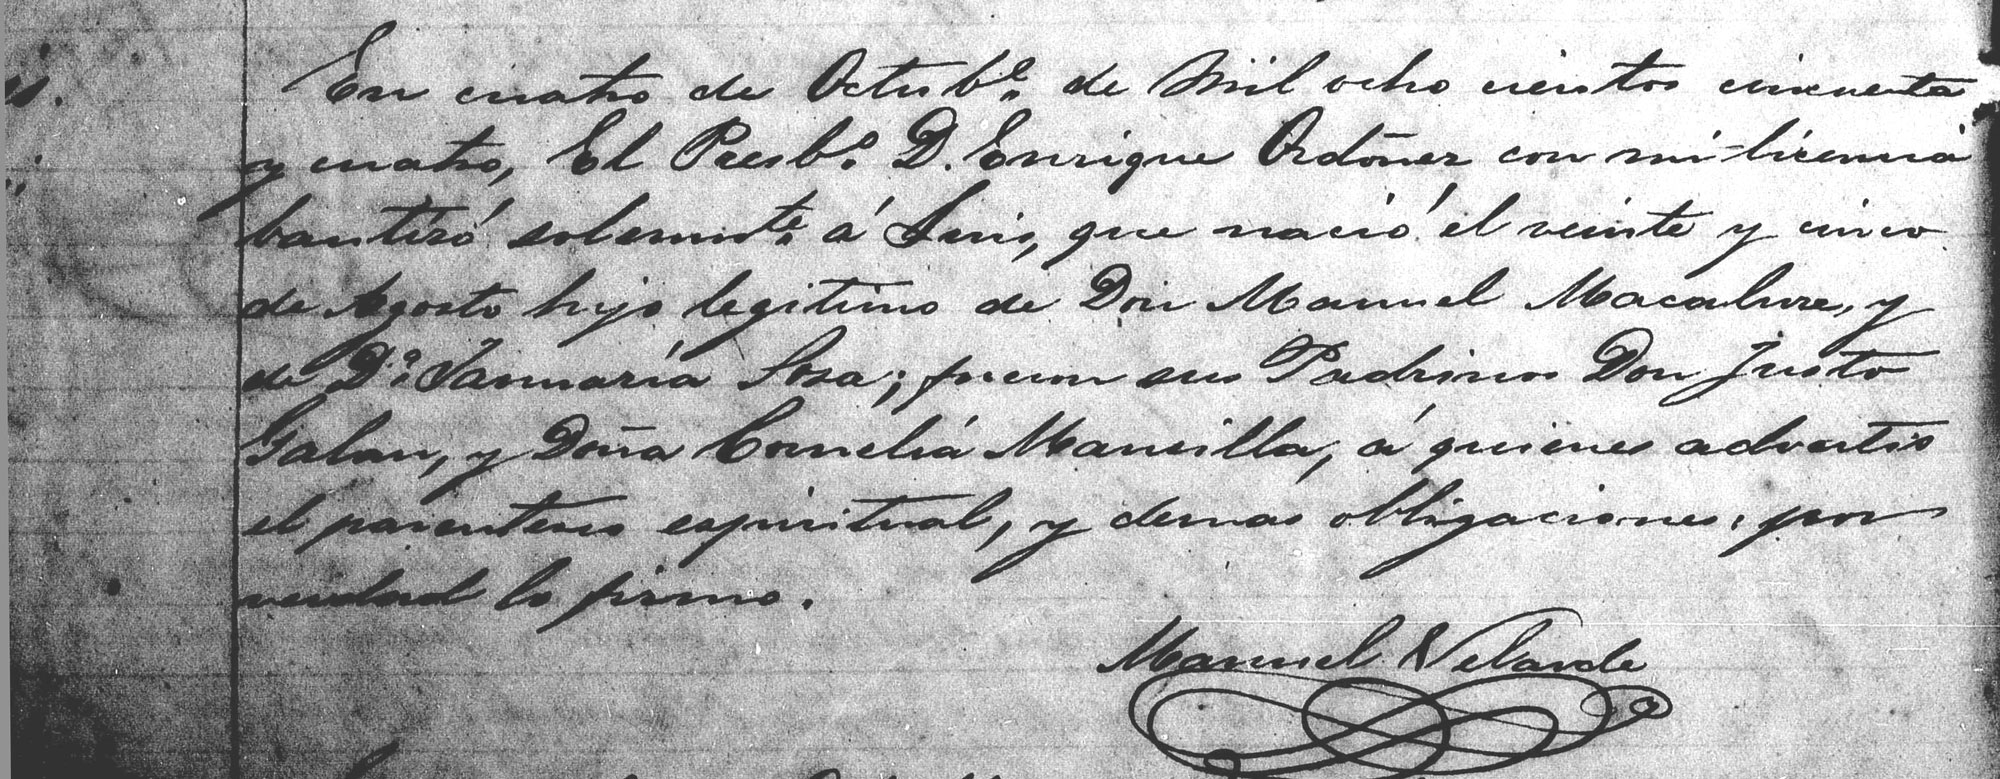 En cuatro de Octub.e de Mil ocho cientos cincuenta
y cuatro, El Presb.o D. Enrique Ordoñez con mi licencia
bautizó solemn.te á Luis, que nació el veinte y cinco
de Agosto hijo legitimo de Don Manuel Macaluse, y
de D.a Januaria Sosa; fueron sus Padrinos Don Justo
Galan, y Doña Cornelia Mansilla, á quienes advertio
el parentesco espiritual, y demas obligaciones: por
verdad lo firmo.
Manuel Velarde